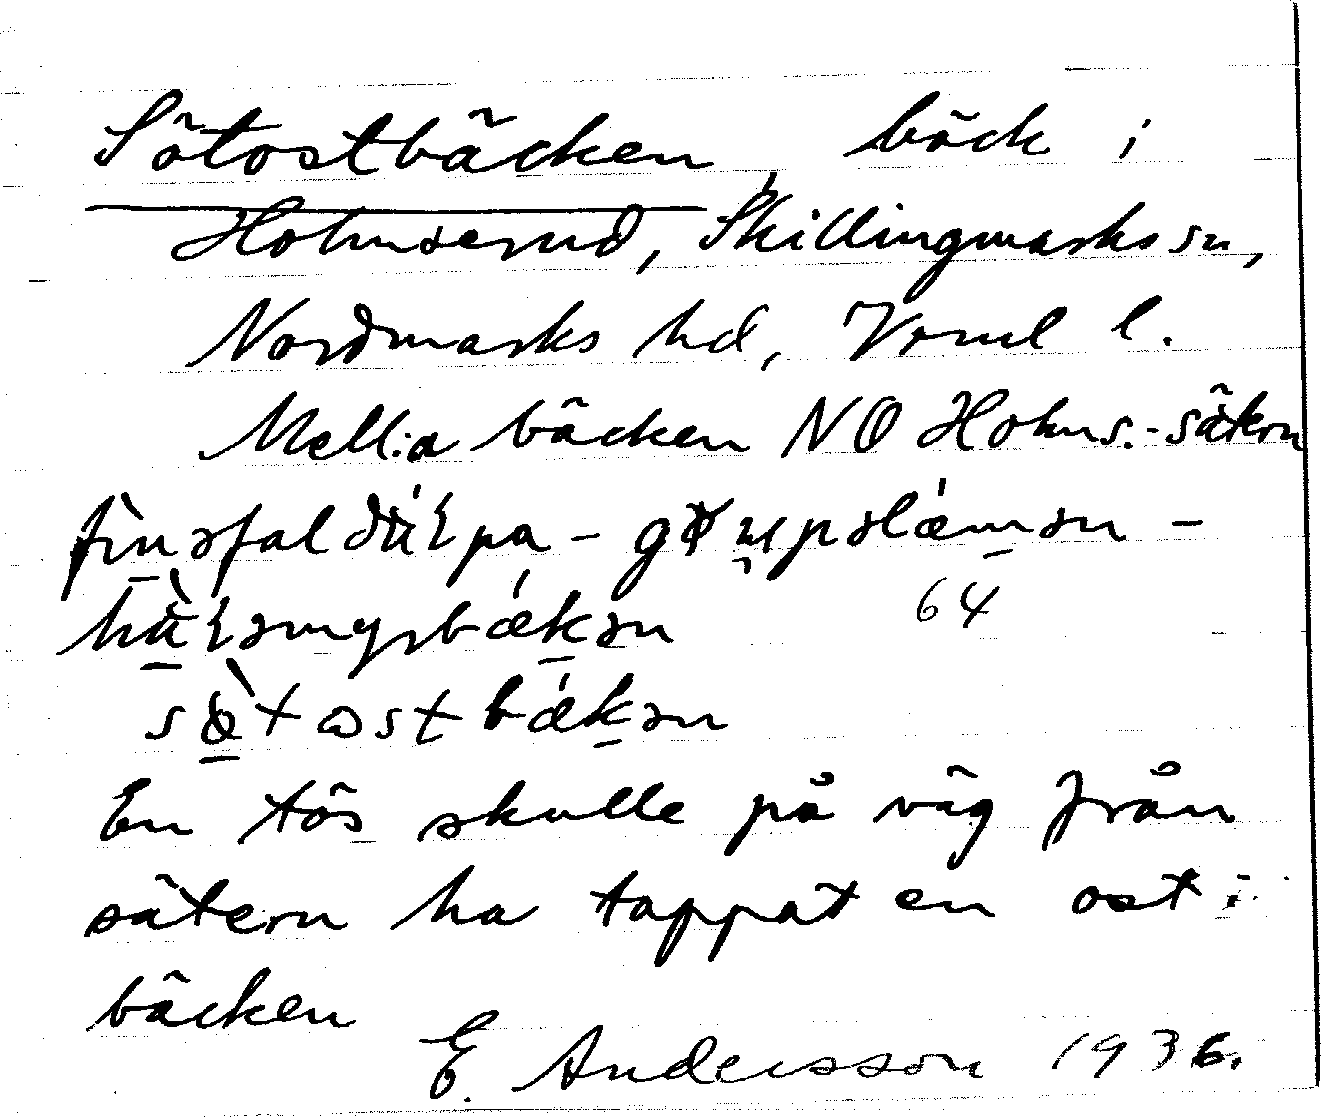 Sötostbäcken, bäck i
Holmserud, Skillingmarks sn,
Nordmarks hd, Vrml l.
Mell:a bäcken NO Holms.-sätern
64
sø̀tɷstbǽkən
En tös skulle på väg från
sätern ha tappat en ost i
bäcken
E. Andersson 1936.